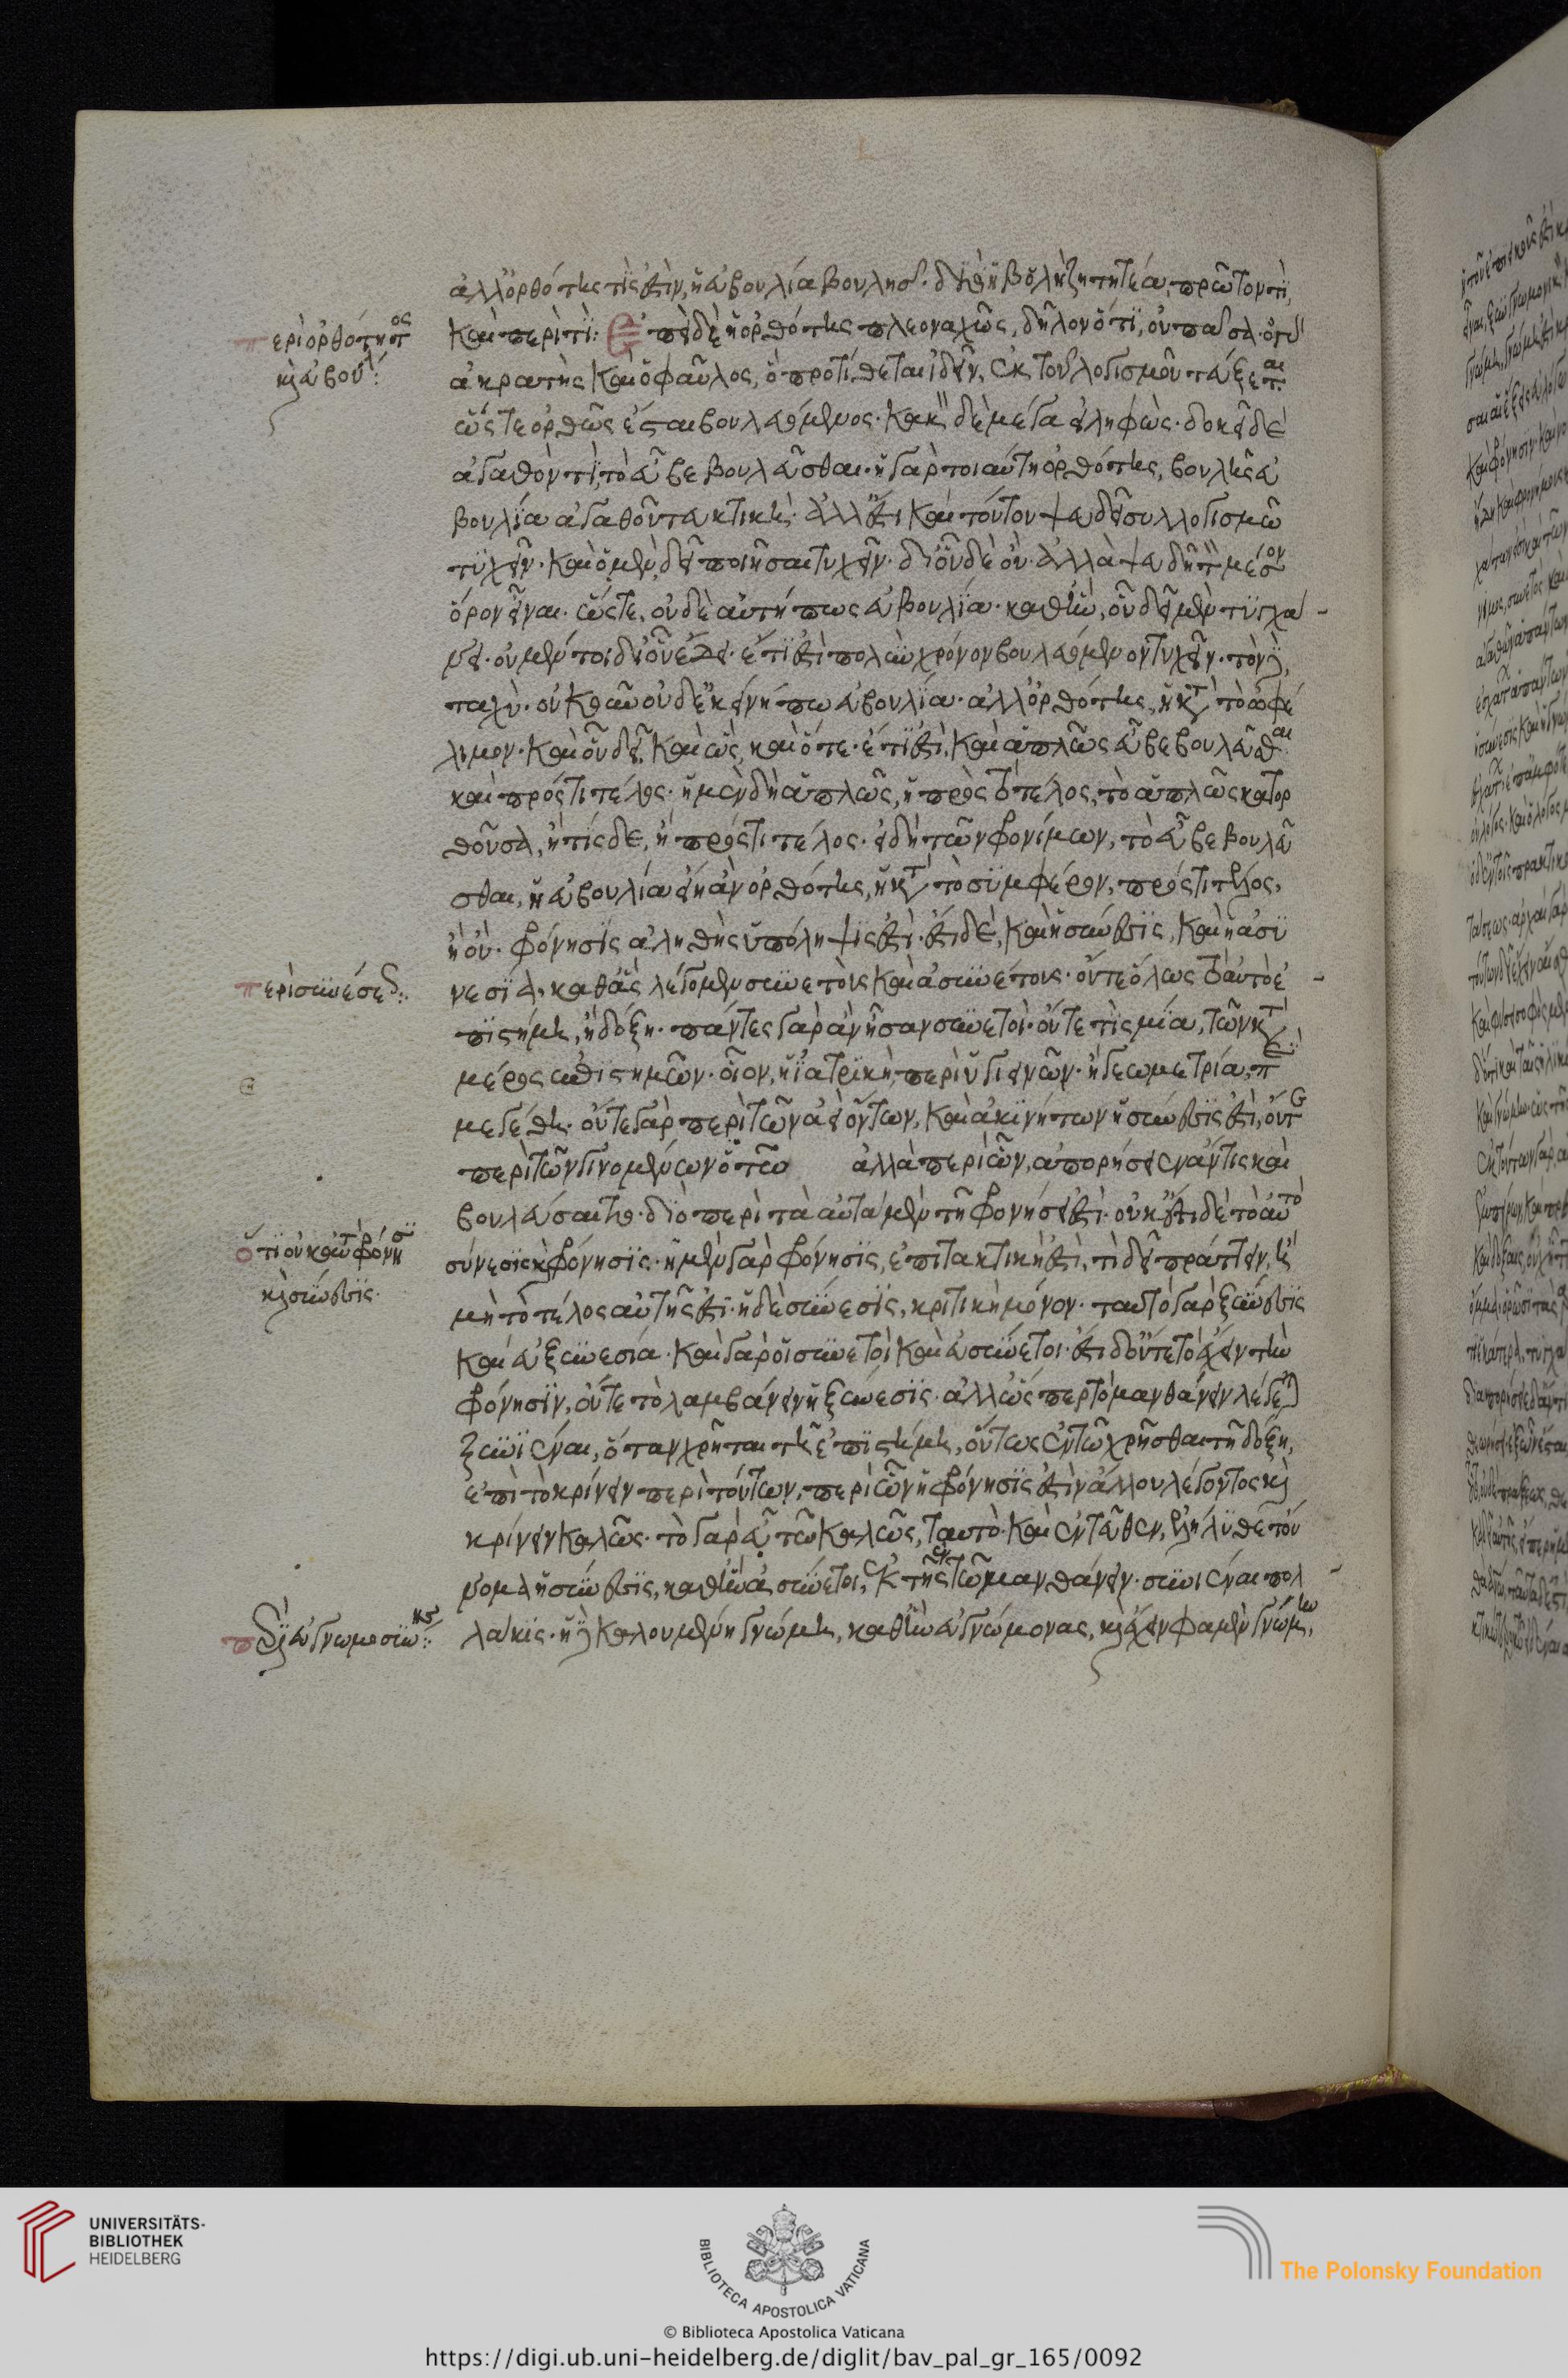 ἀλλ' ὀρθότης τίς ἐστιν, ἡ εὐβουλία βουλῆς· διὸ ἡ βουλὴ ζητητέα, πρῶτον τί,
περὶ ὀρθότητος
καὶ εὐβουλ:
καὶ περὶ τί: Ἐπεὶ δὲ ἡ ὀρθότης πλεοναχῶς, δῆλον ὅτι, οὐ πᾶσα· ὁ γὰρ
ἀκρατὴς καὶ ὁ φαῦλος, ὃ προτίθεται ἰδεῖν, ἐκ τοῦ λογισμοῦ τεύξεται
ὥστε ὀρθῶς ἔσται βουλευόμενος· κακὸν δὲ μέγα εἰληφώς· δοκεῖ δὲ
ἀγαθόν τι, τὸ εὖ βεβουλεῦσθαι· ἡ γὰρ τοιαύτη ὀρθότης, βουλῆς εὐ
βουλία ἀγαθοῦ τευκτική· ἀλλ' ἔστι καὶ τούτου ψευδεῖ συλλογισμῷ
τυχεῖν· καὶ ὃ μὲν δεῖ ποιῆσαι τυχεῖν· δι' οὗ δὲ οὔ· ἀλλὰ ψευδῆ τὸν μέσον
ὅρον εἶναι· ὥστε, οὐδὲ αὕτη πως εὐβουλία· καθ' ἣν, οὗ δεῖ μὲν τυγχά
νει· οὐ μέντοι δι' οὗ ἔδει· ἔτι ἔστι πολὺν χρόνον βουλευόμενον τυχεῖν· τὸν δὲ,
ταχύ· οὐκοῦν οὐδ' ἐκείνη πω εὐβουλία· ἀλλ' ὀρθότης, ἡ κατὰ τὸ ὠφέ
λιμον· καὶ οὗ δεῖ, καὶ ὡς, καὶ ὅτε· ἔτι ἔστι, καὶ ἁπλῶς εὖ βεβουλεῦσθαι
καὶ πρός τι τέλος· ἡ μὲν δὴ ἁπλῶς, ἡ πρὸς τὸ τέλος, τὸ ἁπλῶς κατορ
θοῦσα, ἡ τὶς δὲ, ἡ πρός τι τέλος· εἰ δὴ τῶν φρονίμων, τὸ εὖ βεβουλεῦ
σθαι, ἡ εὐβουλία εἴη ἂν ὀρθότης, ἡ κατὰ τὸ συμφέρον, πρός τι τέλος,
ἢ οὗ· φρόνησις ἀληθὴς ὑπόληψις ἐστί· ἔστι δὲ, καὶ ἡ σύνεσις, καὶ ἡ ἀσυ
περὶ συνέσεως:
νεσία, καθ' ἃς λέγομεν συνετοὺς καὶ ἀσυνέτους· οὔτε ὅλως τὸ αὐτὸ ἐ
πιστήμη, ἢ δόξη· πάντες γὰρ ἂν ἦσαν συνετοί· οὔτε τὶς μία, τῶν κατὰ
μέρος ἐπιστημῶν· οἷον, ἡ ἰατρικὴ, περὶ ὑγιεινῶν· ἡ γεωμετρία, περὶ
μεγέθη· οὔτε γὰρ περὶ τῶν ἀεὶ ὄντων, καὶ ἀκινήτων ἡ σύνεσις ἐστὶ, οὔτε
περὶ τῶν γινομένων ὁτῳοῦ ἀλλὰ περὶ ὧν, ἀπορήσειεν ἄν τις καὶ
βουλεύσαιτο· διὸ περὶ τὰ αὐτὰ μὲν τῇ φρονήσει ἐστί· οὐκ ἔστι δὲ τὸ αὐτὸ
ὅτι οὐ ταυτὸν φρόνησις
καὶ σύνεσις·
σύνεσις καὶ φρόνησις· ἡ μὲν γὰρ φρόνησις, ἐπιτακτική ἐστὶ, τί δεῖ πράττειν, ἢ
μὴ τὸ τέλος αὐτῆς ἐστί· ἡ δὲ σύνεσις, κριτικὴ μόνον· ταυτὸ γὰρ ξύνεσις
καὶ εὐξυνεσία· καὶ γὰρ οἱ συνετοὶ καὶ εὐσύνετοι· ἔστι δ' οὔτε τὸ ἔχειν τὴν
φρόνησιν, οὔτε τὸ λαμβάνειν ἡ ξύνεσις· ἀλλ' ὥσπερ τὸ μανθάνειν λέγεται
ξυνιέναι, ὅταν χρῆται τῇ ἐπιστήμῃ, οὕτως ἐν τῷ χρῆσθαι τῇ δόξῃ,
ἐπὶ τὸ κρίνειν περὶ τούτων, περὶ ὧν ἡ φρόνησις ἐστὶν ἄλλου λέγοντος καὶ
κρίνειν καλῶς· τὸ γὰρ εὖ τῷ καλῶς, ταυτό· καὶ ἐντεῦθεν, ἐλήλυθε τοὔ
νομα ἡ σύνεσις, καθ' ἣν εὐσύνετοι, ἐκ τῆς ἐν τῷ μανθάνειν· συνιέναι πολ
περὶ εὐγνωμοσύνης:
λάκις· ἡ δὲ καλουμένη γνώμη, καθ' ἣν εὐγνώμονας, καὶ ἔχειν φαμὲν γνώμην,
UNIVERSITÄTS-
BIBLIOTHEK
HEIDELBERG
BIBLIOTECA APOSTOLICA VATICANA
The Polonsky Foundation
© Biblioteca Apostolica Vaticana
https://digi.ub.uni-heidelberg.de/diglit/bav_pal_gr_165/0092